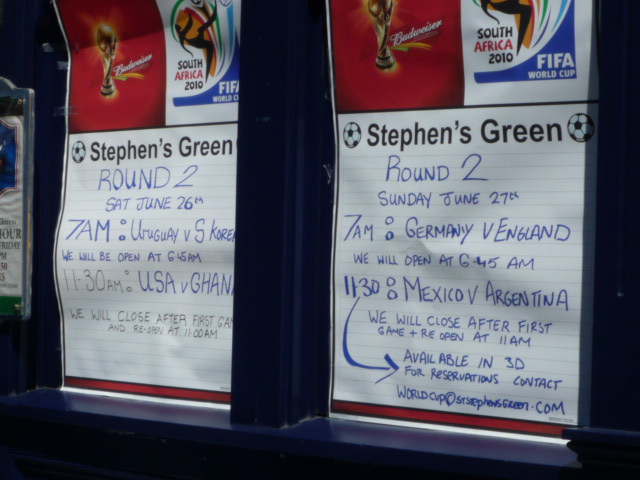 Budweiser
SOUTH
AFRICA
2010
FIFA
WORLD CUP
Stephen's Green
ROUND 2
SAT JUNE 26th
7AM : URUGUAY V S KOREA
WE WILL BE OPEN AT 6:45AM
11:30AM : USA V GHAN
WE WILL CLOSE AFTER FIRST GAM
AND RE-OPEN AT 11:00AM
Budweiser
SOUTH
AFRICA
2010
FIFA
WORLD CUP
Stephen's Green
ROUND 2
SUNDAY JUNE 27th
7AM : GERMANY V ENGLAND
WE WILL OPEN AT 6:45 AM
11:30 : MEXICO V ARGENTINA
WE WILL CLOSE AFTER FIRST
GAME + RE OPEN AT 11AM
AVAILABLE IN 3D
FOR RESERVATIONS CONTACT
WORLDCUP@STSTEPHENSGREEN.COM
HOUR
FRIDAY
PM
.50